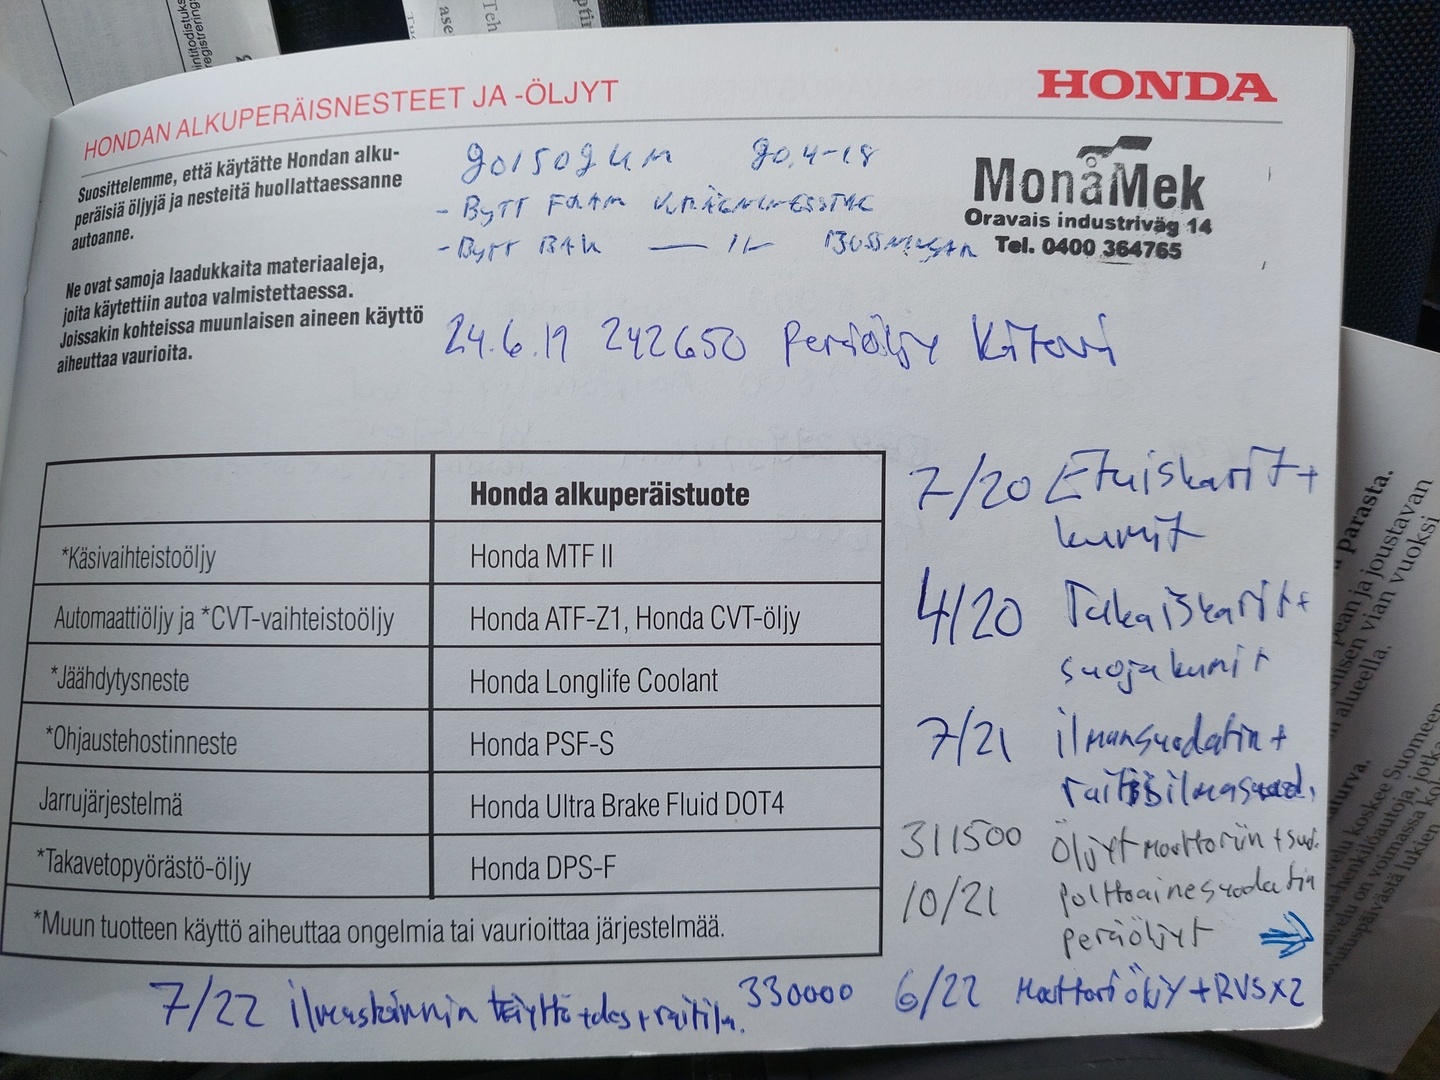 HONDAN ALKUPERÄISNESTEET JA -ÖLJYT
HONDA
Suosittelemme, että käytätte Hondan alku-
peräisiä öljyjä ja nesteitä huollattaessanne
autoanne.
Ne ovat samoja laadukkaita materiaaleja,
joita käytettiin autoa valmistettaessa.
Joissakin kohteissa muunlaisen aineen käyttö
aiheuttaa vaurioita.
20.4-18
- BYTT FRAM
- BYTT BAK — 11 —
MonåMek
Oravais industriväg 14
Tel. 0400 364765
24.6.19 242650 Peräöljy Kitovi
Honda alkuperäistuote
*Käsivaihteistoöljy Honda MTF II
Automaattiöljy ja *CVT-vaihteistoöljy Honda ATF-Z1, Honda CVT-öljy
*Jäähdytysneste Honda Longlife Coolant
*Ohjaustehostinneste Honda PSF-S
Jarrujärjestelmä Honda Ultra Brake Fluid DOT4
*Takavetopyörästö-öljy Honda DPS-F
*Muun tuotteen käyttö aiheuttaa ongelmia tai vaurioittaa järjestelmää.
7/20 Etuiskarit+
kumit
4/20 Takaiskarit+
suojakumit
7/21 ilmansuodatin+
raitisilmasuod.
311500 Öljyt moottoriin + suod.
10/21 polttoainesuodatin
peräöljyt
7/22 ilmastoinnin täyttö +des+raitilm.
330000 6/22 Moottoriöljy + RVSx2